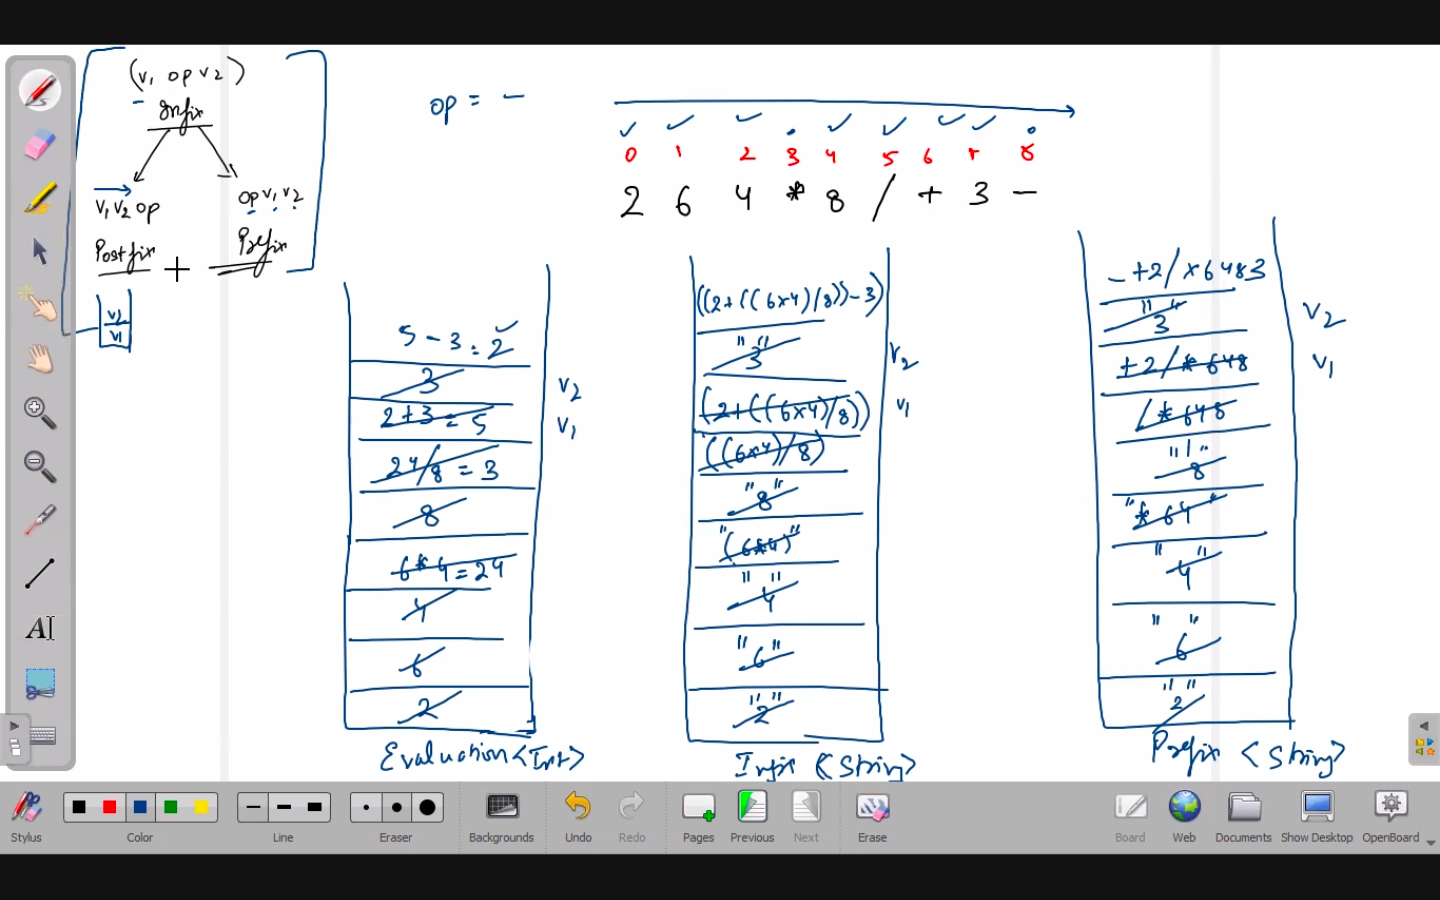 (v1 op v2)
Infix
v1 v2 op
op v1 v2
Postfix + Prefix
v2
v1
op = -
0 1 2 3 4 5 6 7 8
2 6 4 * 8 / + 3 -
5 - 3 = 2
3 v2
2 + 3 = 5 v1
24/8 = 3
8
6 * 4 = 24
4
6
2
Evaluation <Int>
((2+((6×4)/8))-3)
"3" v2
(2+((6×4)/8)) v1
((6×4)/8)
"8"
"(6*4)"
"4"
"6"
"2"
Infix <String>
-+2/×6483
"3" v2
+2/*648 v1
/*648
"8"
"*64"
"4"
"6"
"2"
Prefix <String>
A
Stylus Color Line Eraser Backgrounds Undo Redo Pages Previous Next Erase Board Web Documents Show Desktop OpenBoard